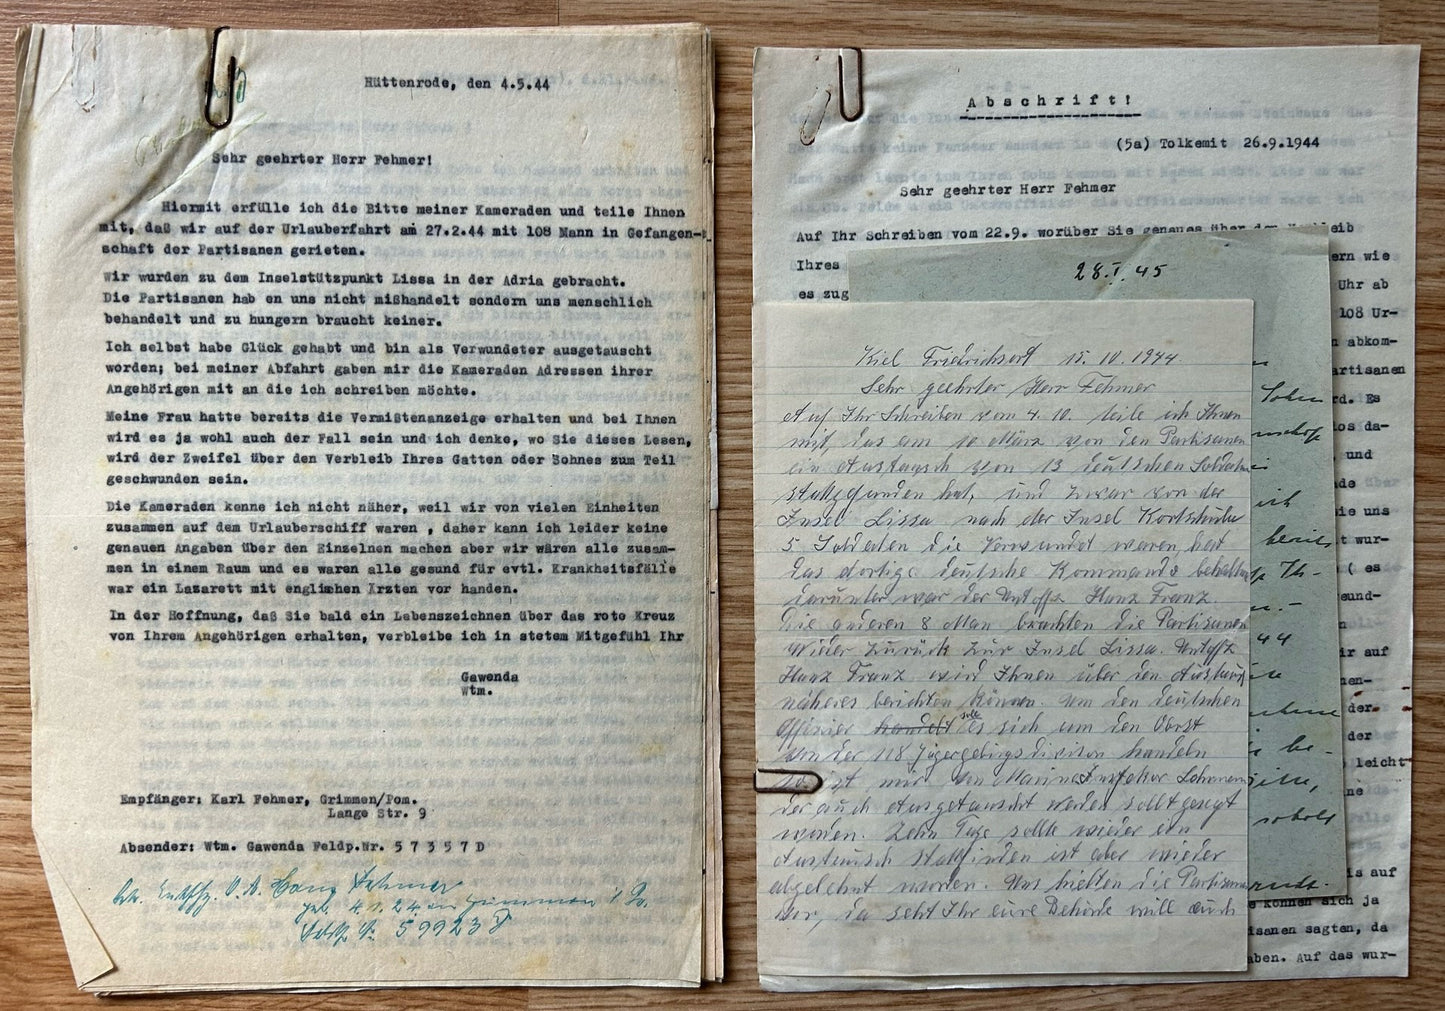 Hüttenrode, den 4.5.44
Sehr geehrter Herr Fehmer!
Hiermit erfülle ich die Bitte meiner Kameraden und teile Ihnen
mit, daß wir auf der Urlauberfahrt am 27.2.44 mit 108 Mann in Gefangen-
schaft der Partisanen gerieten.
Wir wurden zu dem Inselstützpunkt Lissa in der Adria gebracht.
Die Partisanen hab en uns nicht mißhandelt sondern uns menschlich
behandelt und zu hungern braucht keiner.
Ich selbst habe Glück gehabt und bin als Verwundeter ausgetauscht
worden; bei meiner Abfahrt gaben mir die Kameraden Adressen ihrer
Angehörigen mit an die ich schreiben möchte.
Meine Frau hatte bereits die Vermißtenanzeige erhalten und bei Ihnen
wird es ja wohl auch der Fall sein und ich denke, wo Sie dieses Lesen,
wird der Zweifel über den Verbleib Ihres Gatten oder Sohnes zum Teil
geschwunden sein.
Die Kameraden kenne ich nicht näher, weil wir von vielen Einheiten
zusammen auf dem Urlauberschiff waren , daher kann ich leider keine
genauen Angaben über den Einzelnen machen aber wir wären alle zusam-
men in einem Raum und es waren alle gesund für evtl. Krankheitsfälle
war ein Lazarett mit englischen Ärzten vor handen.
In der Hoffnung, daß Sie bald ein Lebenszeichnen über das rote Kreuz
von Ihrem Angehörigen erhalten, verbleibe ich in stetem Mitgefühl Ihr
Gawenda
Wtm.
Empfänger: Karl Fehmer, Grimmen/Pom.
Lange Str. 9
Absender: Wtm. Gawenda Feldp.Nr. 57357D
Hans Fehmer
geb. 4.1.24 in Grimmen i Po.
59923
Abschrift!
(5a) Tolkemit 26.9.1944
Sehr geehrter Herr Fehmer
Auf Ihr Schreiben vom 22.9. worüber Sie genaues über den Verbleib
Ihres
ern wie
es zug
Uhr ab
108 Ur-
n abkom-
artisanen
rd. Es
los da-
und
de
ie uns
t wur-
( es
eund-
ir auf
en-
der
der
leicht
ne
is auf
e können sich ja
isanen sagten, da
aben. Auf das wur-
28.I.45
Sohn
ich
bereits
Ih-
44
be-
sobald
Kiel Friedrichsort 15.10.1944.
Sehr geehrter Herr Fehmer
Auf Ihr Schreiben vom 4.10. teile ich Ihnen
mit, das am 10 März von den Partisanen
ein Austausch von 13 deutschen Soldaten
stattgefunden hat, und zwar von der
Insel Lissa nach der Insel
5 Soldaten die Verwundet waren, hat
das dortige deutsche Kommando behalten
darunter war der Untoffz Hanz Franz.
Die anderen 8 Man brachten die Partisanen
wieder zurück zur Insel Lissa. Untoffz
Hanz Franz wird Ihnen über den Austausch
näheres berichten können. Um den deutschen
Offizier handelt soll es sich um den Oberst
von der 118 Jägergebirgsdivison handeln
so ist mir von Marine
der auch Ausgetauscht werden sollt gesagt
worden. Zehn Tage sollte wieder ein
Austausch stattfinden ist aber wieder
abgelehnt worden. Uns hielten die Partisanen
vor, da seht Ihr eure Behörde will euch